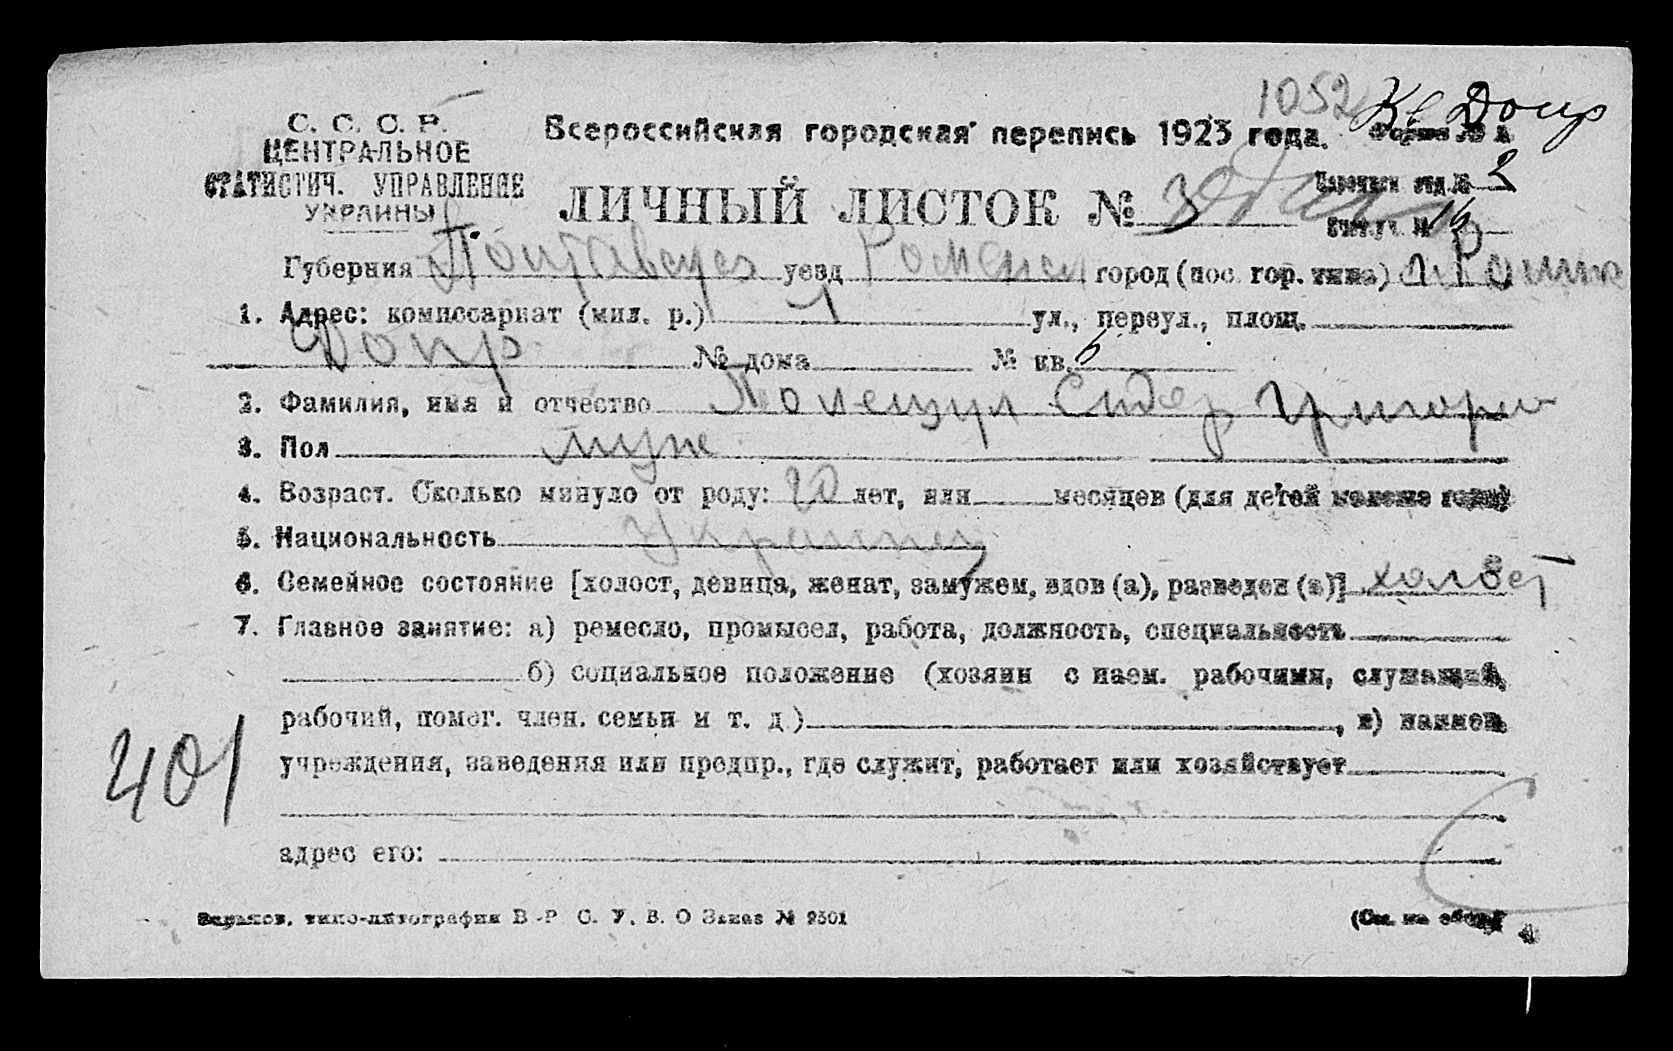 1052 Кв Допр
С. С. С. Р.
ЦЕНТРАЛЬНОЕ
СТАТИСТИЧ. УПРАВЛЕНИЕ
УКРАИНЫ
Всероссийская городская перепись 1923 года. Форма № А
ЛИЧНЫЙ ЛИСТОК № 3
отд. № 2
№ 16
Губерния Полтавская уезд Роменск город (пос. гор. типа) г. Ромны
1. Адрес: комиссариат (мил. р.) 1 ул., переул., площ.
Допр № дома № кв. 6
2. Фамилия, имя и отчество Полещук Сидор Григорьев
3. Пол муж
4. Возраст. Сколько минуло от роду: 20 лет, или месяцев (для детей моложе года)
5. Национальность Украинец
6. Семейное состояние [холост, девица, женат, замужем, вдов (а), разведен (а)] холост
7. Главное занятие: а) ремесло, промысел, работа, должность, специальность
б) социальное положение (хозяин с наем. рабочими, служащий,
рабочий, помог. член. семьи и т. д.) , в) наимен.
учреждения, заведения или предпр., где служит, работает или хозяйствует
401
адрес его:
Харьков, типо-литография В.-Р. С. У. В. О Заказ № 9501
(См. на обор.)